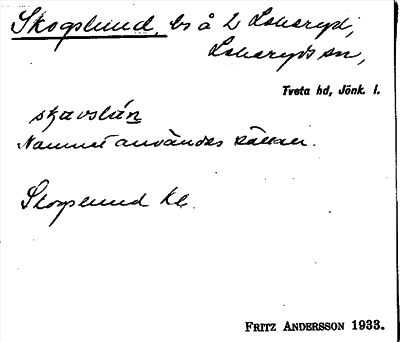 Skogslund, bs å 2 Lekeryd,
Lekeryds sn,
Tveta hd, Jönk. l.
Namnet användes sällan.
Skogslund Kl.
FRITZ ANDERSSON 1933.